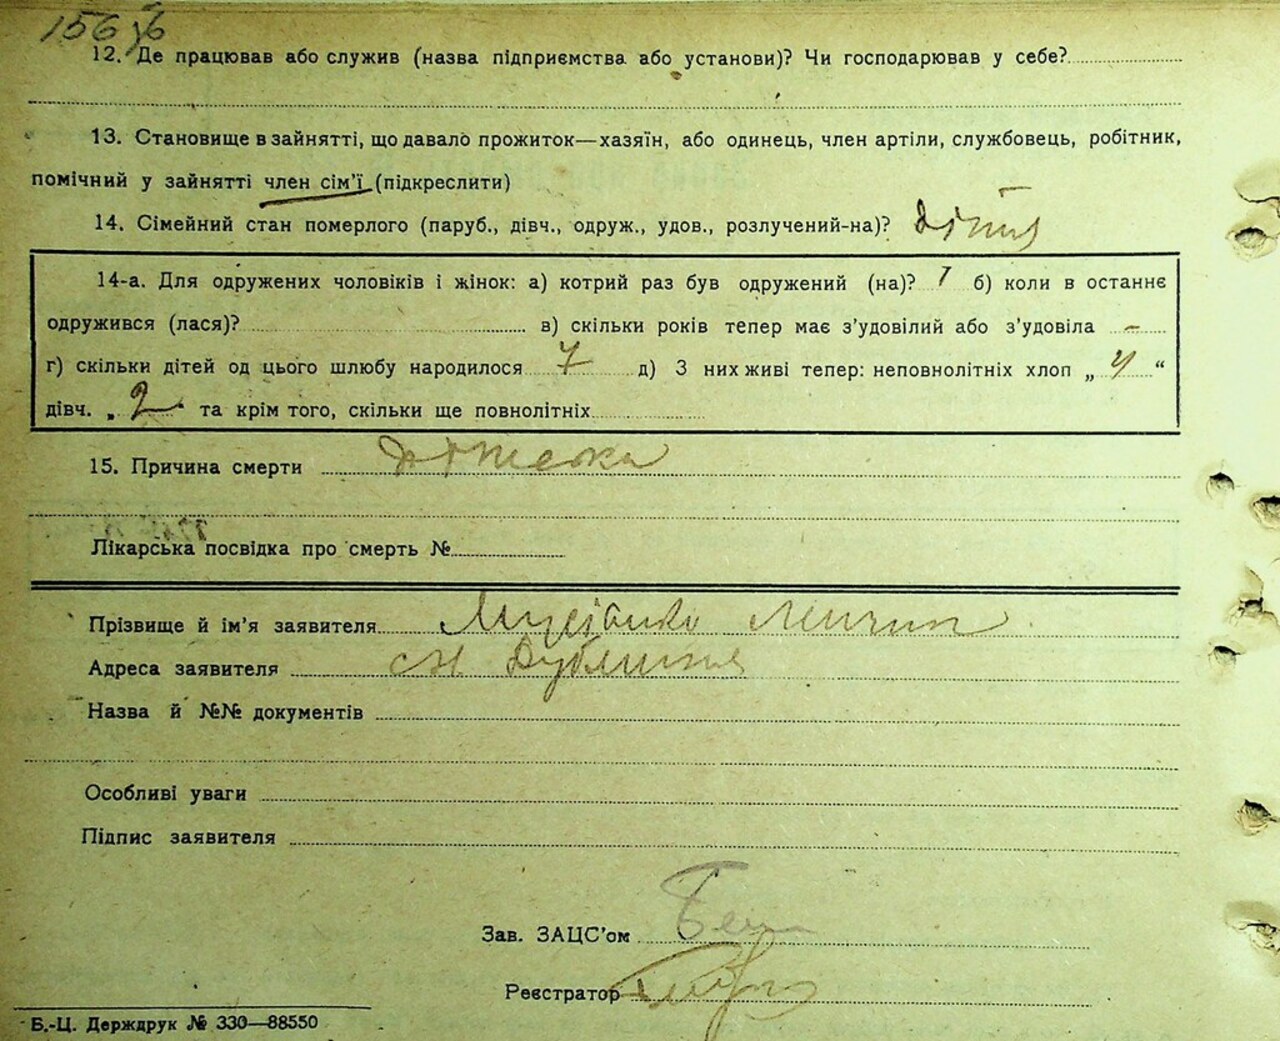 156
12. Де працював або служив (назва підприємства або установи)? Чи господарював у себе?
13. Становище в зайнятті, що давало прожиток—хазяїн, або одинець, член артіли, службовець, робітник,
помічний у зайнятті член сім'ї (підкреслити)
14. Сімейний стан померлого (паруб., дівч., одруж., удов., розлучений-на)?
14-а. Для одружених чоловіків і жінок: а) котрий раз був одружений (на)? 1 б) коли в останнє
одружився (лася)? в) скільки років тепер має з'удовілий або з'удовіла –
г) скільки дітей од цього шлюбу народилося 7 д) З них живі тепер: неповнолітніх хлоп „ 4 “
дівч. „ 2 “ та крім того, скільки ще повнолітніх
15. Причина смерти
Лікарська посвідка про смерть №
Прізвище й ім'я заявителя
Адреса заявителя
Назва й №№ документів
Особливі уваги
Підпис заявителя
Зав. ЗАЦС'ом
Реєстратор
Б.-Ц. Держдрук № 330—88550